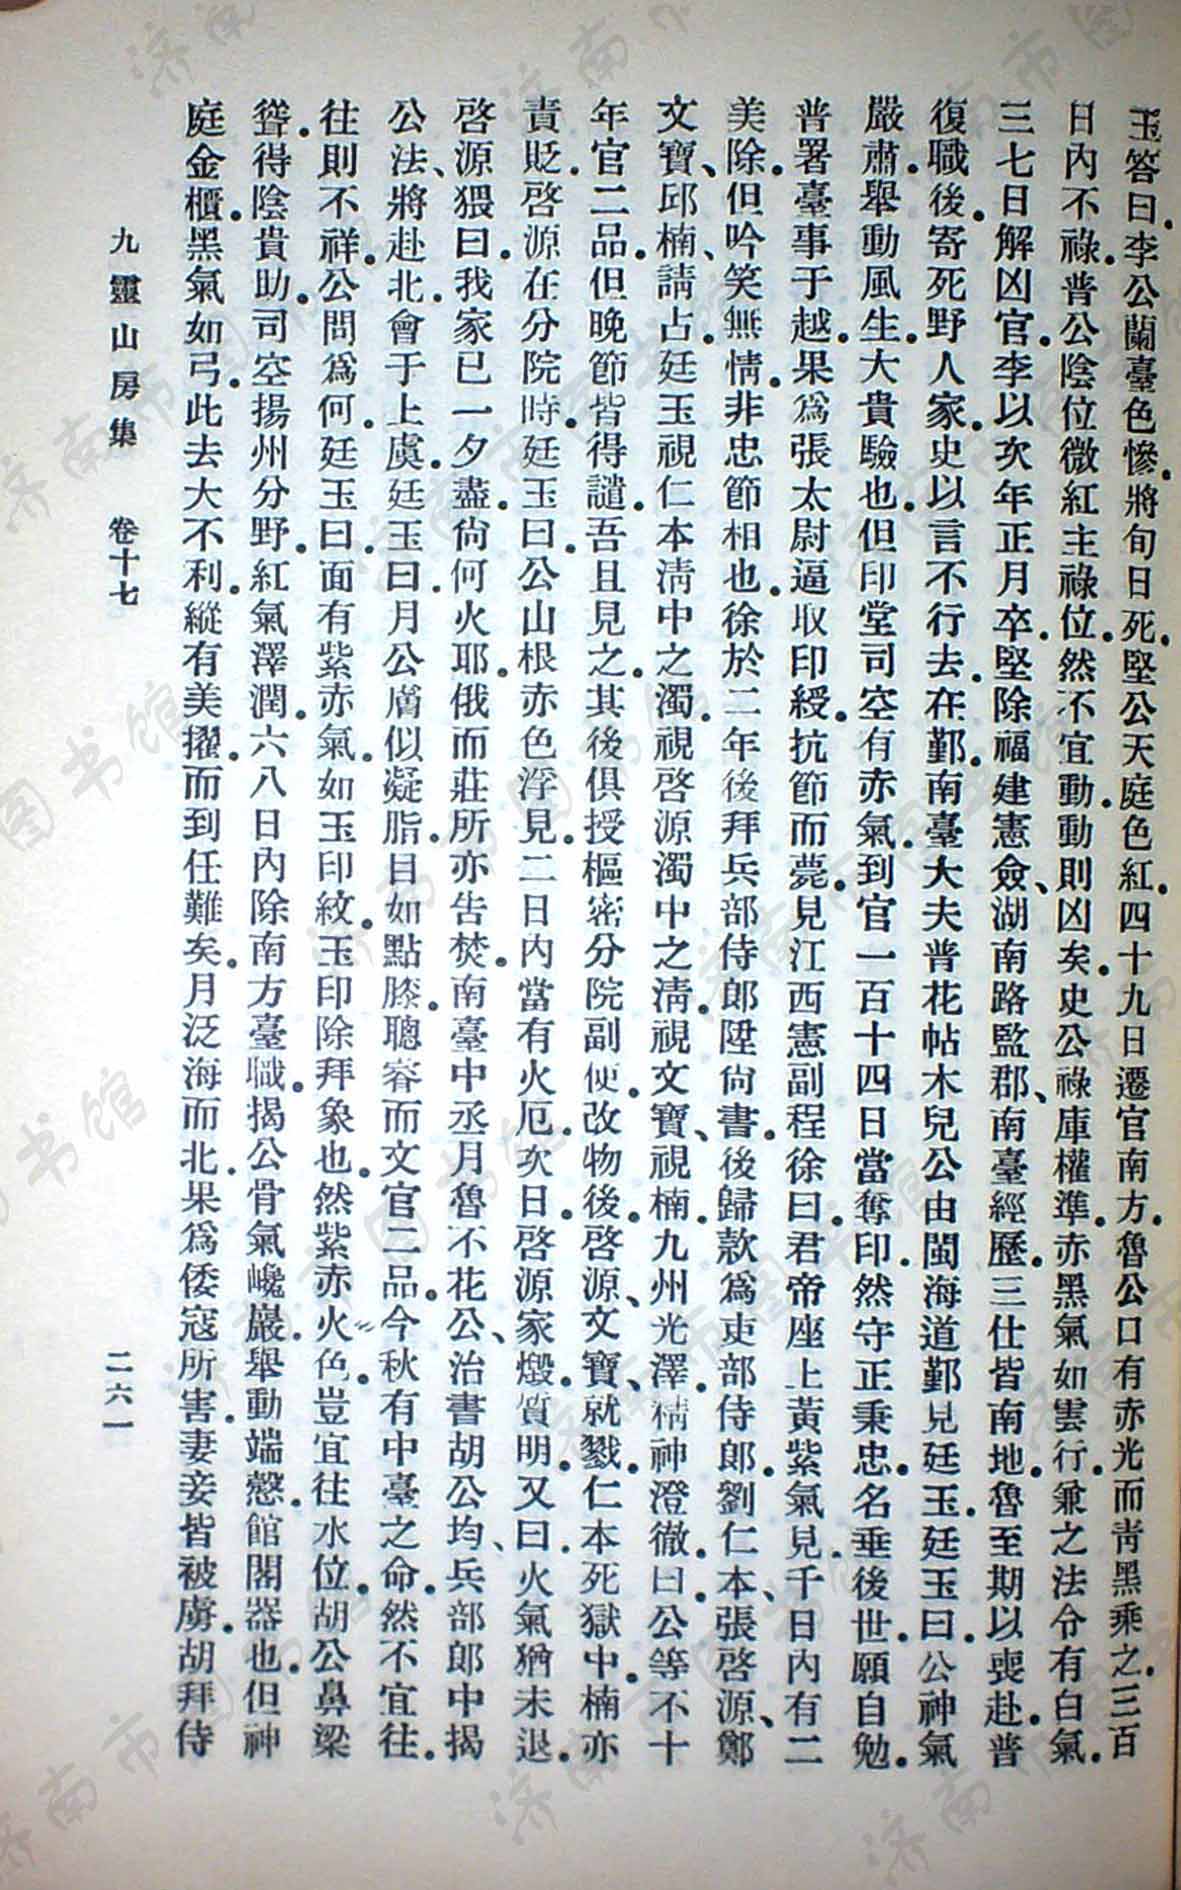 玉答曰.李公蘭臺色慘.將旬日死.堅公天庭色紅.四十九日遷官南方.魯公口有赤光而靑黑乘之.三百
日內不祿.普公陰位微紅主祿位.然不宜動.動則凶矣.史公祿庫權準.亦黑氣如雲行.兼之法令有白氣.
三七日解凶官.李以次年正月卒.堅除福建憲僉、湖南路監郡、南臺經歷.三仕皆南地.魯至期以喪赴.普
復職後.寄死野人家.史以言不行去.在鄞.南臺大夫普花帖木兒公由閩海道鄞.見廷玉.廷玉曰.公神氣
嚴肅.舉動風生.大貴驗也.但印堂司空有赤氣.到官一百十四日當奪印.然守正秉忠.名垂後世.願自勉.
普署臺事于越.果爲張太尉逼取印綬.抗節而薨.見江西憲副程徐曰.君帝座上黃紫氣見.千日內有二
美除.但吟笑無情.非忠節相也.徐於二年後拜兵部侍郎陞尙書.後歸款爲吏部侍郎.劉仁本、張啓源、鄭
文寶、邱楠.請占.廷玉視仁本淸中之濁.視啓源濁中之淸.視文寶、視楠.九州光澤.精神澄徹.曰.公等不十
年官二品.但晚節皆得譴.吾且見之.其後俱授樞密分院副使.改物後.啓源、文寶、就戮.仁本死獄中.楠亦
責貶.啓源在分院時.廷玉曰.公山根赤色浮見.二日內當有火厄.次日.啓源家燬.質明.又曰.火氣猶未退.
啓源猥曰.我家已一夕盡.尙何火耶.俄而莊所亦告焚.南臺中丞月魯不花公、治書胡公均、兵部郎中揭
公法、將赴北.會于上虞.廷玉曰.月公膚似凝脂.目如點膝.聰睿而文官二品.今秋有中臺之命.然不宜往.
往則不祥.公問爲何.廷玉曰.面有紫赤氣.如玉印紋.玉印除拜象也.然紫赤火色.豈宜往水位.胡公鼻梁
聳.得陰貴助.司空揚州分野.紅氣澤潤.六八日內除南方臺職.揭公骨氣巉巖.舉動端慤.館閣器也.但神
庭金櫃.黑氣如弓.此去大不利.縱有美擢.而到任難矣.月泛海而北.果爲倭寇所害.妻妾皆被虜.胡拜侍
九靈山房集 卷十七 二六一